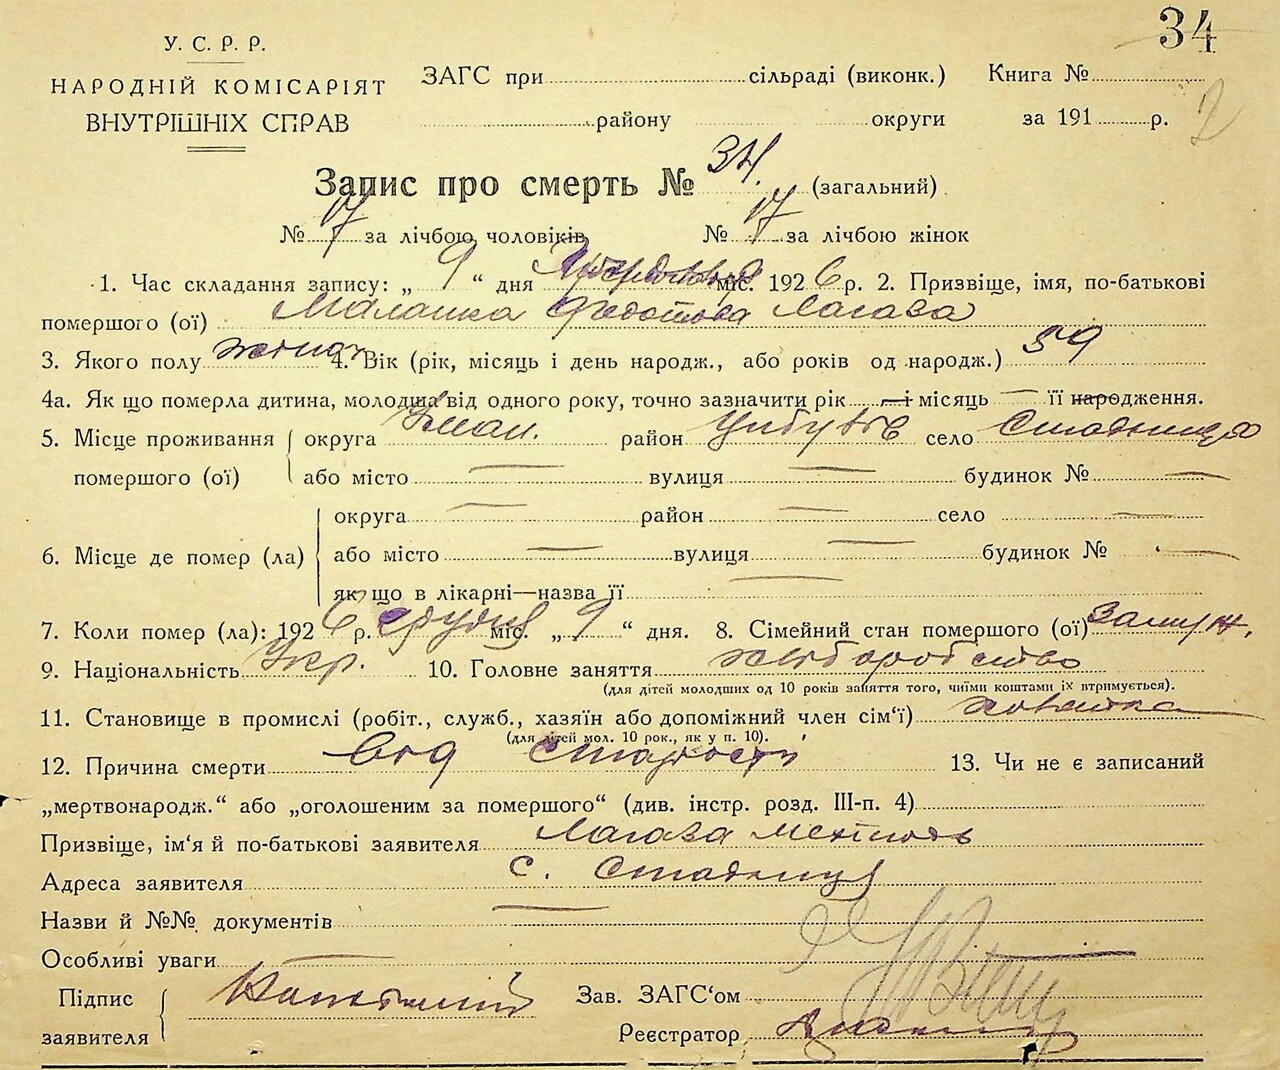 34
У. С. Р. Р.
НАРОДНІЙ КОМІСАРІЯТ
ВНУТРІШНІХ СПРАВ
ЗАГС при сільраді (виконк.) Книга №
району округи за 191 р.
2
Запис про смерть № 34. (загальний)
№ 17 за лічбою чоловіків № 17 за лічбою жінок
1. Час складання запису: „ 9 “ дня міс. 1926 р. 2. Призвіще, імя, по-батькові
помершого (ої) Малашка Федотова Лагава
3. Якого полу 4. Вік (рік, місяць і день народж., або років од народж.) 59
4а. Як що померла дитина, молодша від одного року, точно зазначити рік — і місяць — її народження.
5. Місце проживання помершого (ої)
округа Уман. район село Стадниця
або місто — вулиця — будинок № —
6. Місце де помер (ла)
округа — район — село —
або місто — вулиця — будинок № —
як що в лікарні—назва її —
7. Коли помер (ла): 1926 р. грудня міс. „ 9 “ дня. 8. Сімейний стан помершого (ої) Замуж.
9. Національність Укр. 10. Головне заняття хліборобство
(для дітей молодших од 10 років заняття того, чиїми коштами їх втримується).
11. Становище в промислі (робіт., служб., хазяїн або допоміжний член сім‘ї)
(для дітей мол. 10 рок., як у п. 10).
12. Причина смерти від старости 13. Чи не є записаний
„мертвонародж.“ або „оголошеним за помершого“ (див. інстр. розд. III-п. 4)
Призвіще, ім‘я й по-батькові заявителя Лагава
Адреса заявителя с. Стадниця
Назви й №№ документів —
Особливі уваги —
Підпис заявителя
Зав. ЗАГС‘ом
Реєстратор